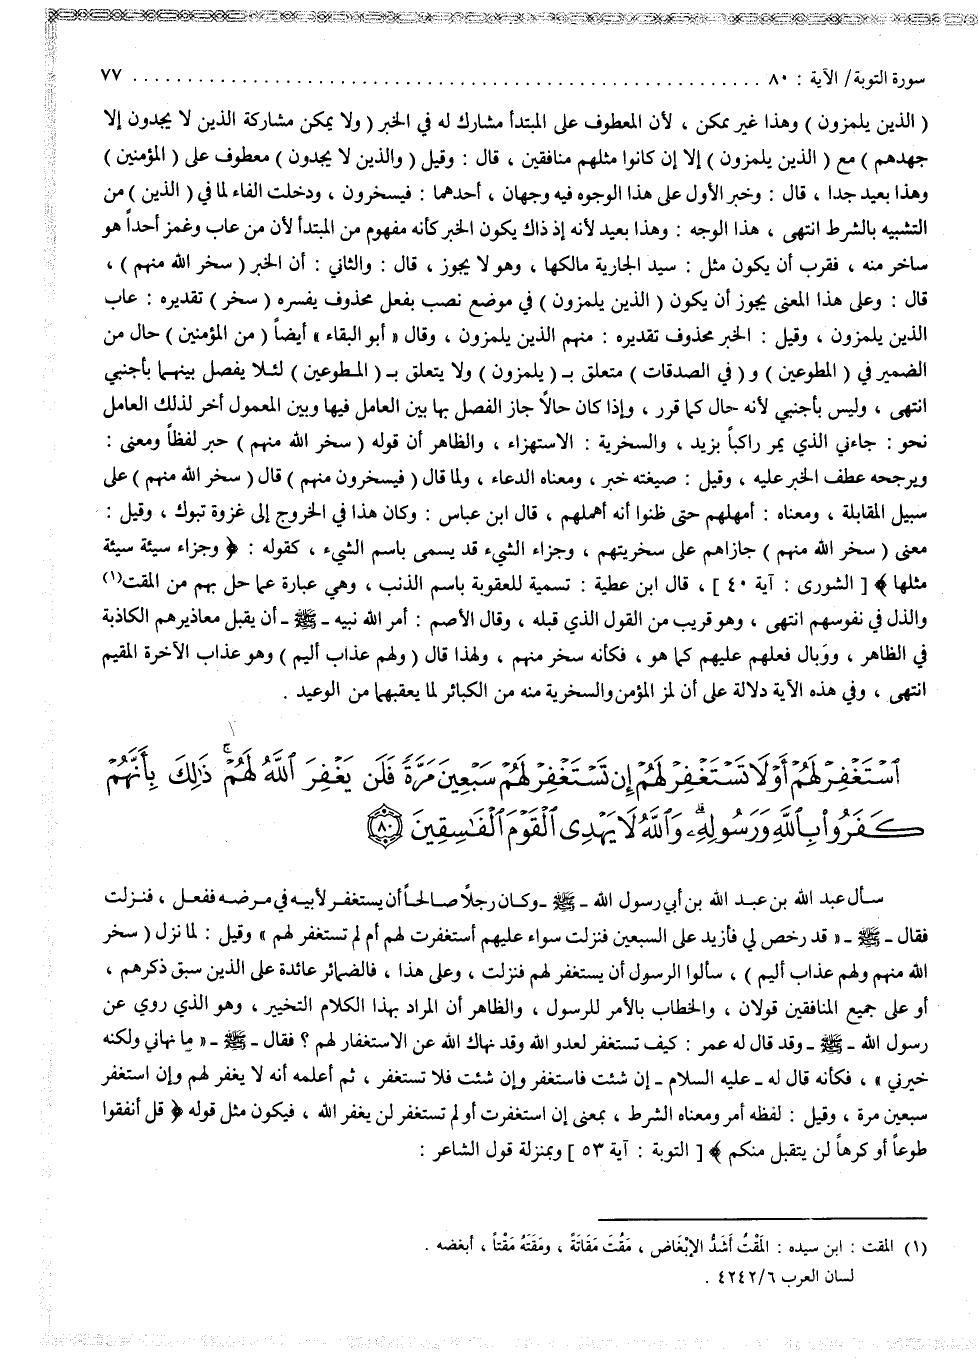 سورة التوبة/ الآية : ٨٠ ............................................................ ٧٧
( الذين يلمزون ) وهذا غير ممكن ، لأن المعطوف على المبتدأ مشارك له في الخبر ( ولا يمكن مشاركة الذين لا يجدون إلا
جهدهم ) مع ( الذين يلمزون ) إلا إن كانوا مثلهم منافقين ، قال : وقيل ( والذين لا يجدون ) معطوف على ( المؤمنين )
وهذا بعيد جدا ، قال : وخبر الأول على هذا الوجوه فيه وجهان ، أحدهما : فيسخرون ، ودخلت الفاء لما في ( الذين ) من
التشبيه بالشرط انتهى ، هذا الوجه : وهذا بعيد لأنه إذ ذاك يكون الخبر كأنه مفهوم من المبتدأ لأن من عاب وغمز أحداً هو
ساخر منه ، فقرب أن يكون مثل : سيد الجارية مالكها ، وهو لا يجوز ، قال : والثاني : أن الخبر ( سخر الله منهم ) ،
قال : وعلى هذا المعنى يجوز أن يكون ( الذين يلمزون ) في موضع نصب بفعل محذوف يفسره ( سخر ) تقديره : عاب
الذين يلمزون ، وقيل : الخبر محذوف تقديره : منهم الذين يلمزون ، وقال « أبو البقاء » أيضاً ( من المؤمنين ) حال من
الضمير في ( المطوعين ) و ( في الصدقات ) متعلق بـ ( يلمزون ) ولا يتعلق بـ ( المطوعين ) لئلا يفصل بينهما بأجنبي
انتهى ، وليس بأجنبي لأنه حال كما قرر ، وإذا كان حالاً جاز الفصل بها بين العامل فيها وبين المعمول أخر لذلك العامل
نحو : جاءني الذي يمر راكباً بزيد ، والسخرية : الاستهزاء ، والظاهر أن قوله ( سخر الله منهم ) حبر لفظاً ومعنى :
ويرجحه عطف الخبر عليه ، وقيل : صيغته خبر ، ومعناه الدعاء ، ولما قال ( فيسخرون منهم ) قال ( سخر الله منهم ) على
سبيل المقابلة ، ومعناه : أمهلهم حتى ظنوا أنه أهملهم ، قال ابن عباس : وكان هذا في الخروج إلى غزوة تبوك ، وقيل :
معنى ( سخر الله منهم ) جازاهم على سخريتهم ، وجزاء الشيء قد يسمى باسم الشيء ، كقوله : ﴿ وجزاء سيئة سيئة
مثلها ﴾ [ الشورى : آية ٤٠ ] ، قال ابن عطية : تسمية للعقوبة باسم الذنب ، وهي عبارة عما حل بهم من المقت(١)
والذل في نفوسهم انتهى ، وهو قريب من القول الذي قبله ، وقال الأصم : أمر الله نبيه ـ ﷺ ـ أن يقبل معاذيرهم الكاذبة
في الظاهر ، ووَبال فعلهم عليهم كما هو ، فكأنه سخر منهم ، ولهذا قال ( ولهم عذاب أليم ) وهو عذاب الآخرة المقيم
انتهى ، وفي هذه الآية دلالة على أن لمز المؤمن والسخرية منه من الكبائر لما يعقبهما من الوعيد .
ٱسْتَغْفِرْ لَهُمْ أَوْ لَا تَسْتَغْفِرْ لَهُمْ إِن تَسْتَغْفِرْ لَهُمْ سَبْعِينَ مَرَّةً فَلَن يَغْفِرَ ٱللَّهُ لَهُمْ ۚ ذَٰلِكَ بِأَنَّهُمْ
كَفَرُوا۟ بِٱللَّهِ وَرَسُولِهِۦ ۗ وَٱللَّهُ لَا يَهْدِى ٱلْقَوْمَ ٱلْفَٰسِقِينَ ٨٠
سأل عبد الله بن عبد الله بن أبي رسول الله ـ ﷺ ـ وكان رجلاً صالحاً أن يستغفر لأبيه في مرضه ففعل ، فنزلت
فقال ـ ﷺ ـ « قد رخص لي فأزيد على السبعين فنزلت سواء عليهم أستغفرت لهم أم لم تستغفر لهم » وقيل : لما نزل ( سخر
الله منهم ولهم عذاب أليم ) ، سألوا الرسول أن يستغفر لهم فنزلت ، وعلى هذا ، فالضمائر عائدة على الذين سبق ذكرهم ،
أو على جميع المنافقين قولان ، والخطاب بالأمر للرسول ، والظاهر أن المراد بهذا الكلام التخيير ، وهو الذي روي عن
رسول الله ـ ﷺ ـ وقد قال له عمر : كيف تستغفر لعدو الله وقد نهاك الله عن الاستغفار لهم ؟ فقال ـ ﷺ ـ « ما نهاني ولكنه
خيرني » ، فكأنه قال له ـ عليه السلام ـ إن شئت فاستغفر وإن شئت فلا تستغفر ، ثم أعلمه أنه لا يغفر لهم وإن استغفر
سبعين مرة ، وقيل : لفظه أمر ومعناه الشرط ، بمعنى إن استغفرت أو لم تستغفر لن يغفر الله ، فيكون مثل قوله ﴿ قل أنفقوا
طوعاً أو كرهاً لن يتقبل منكم ﴾ [ التوبة : آية ٥٣ ] وبمنزلة قول الشاعر :
(١) المقت : ابن سيده : المَقْتُ أَشَدُّ الإِبْغَاض ، مَقُتَ مَقَاتَةً ، ومَقَتَهُ مَقْتاً ، أبغضه .
لسان العرب ٤٢٤٢/٦ .